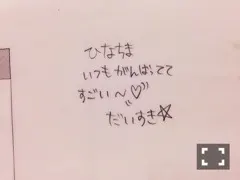 ひなちま
いつもがんばってて
すごい〜♡
だいすき☆